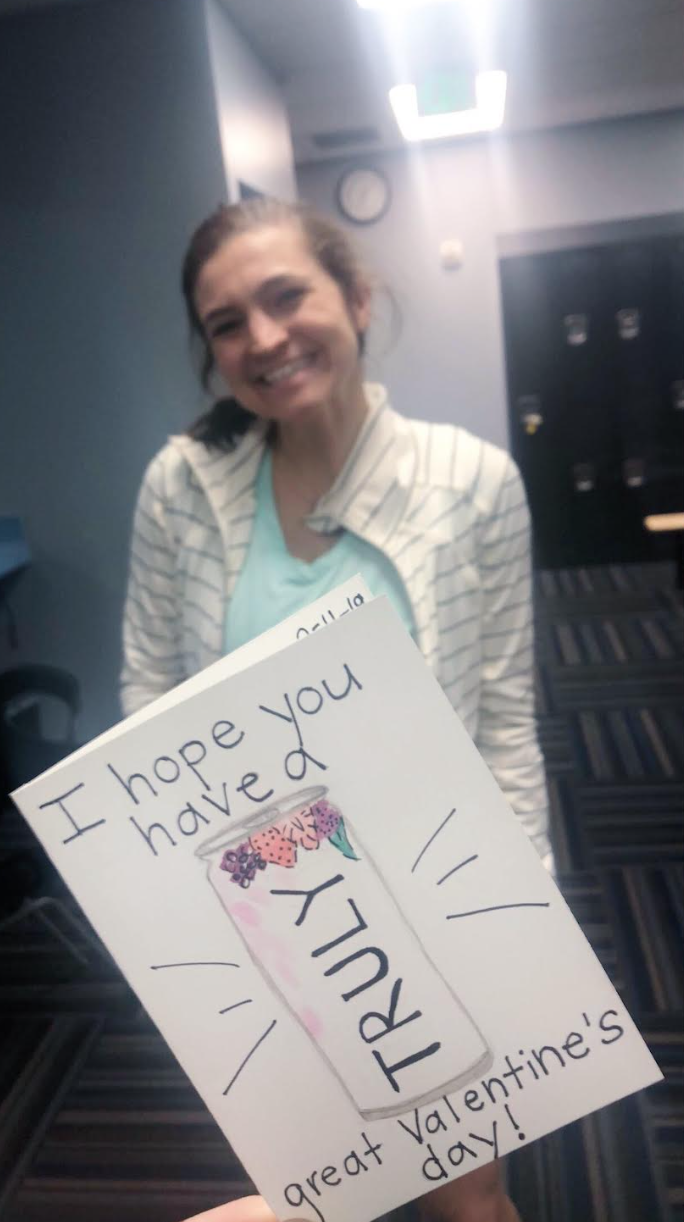 I hope you
have a
TRULY
great Valentine's
day!